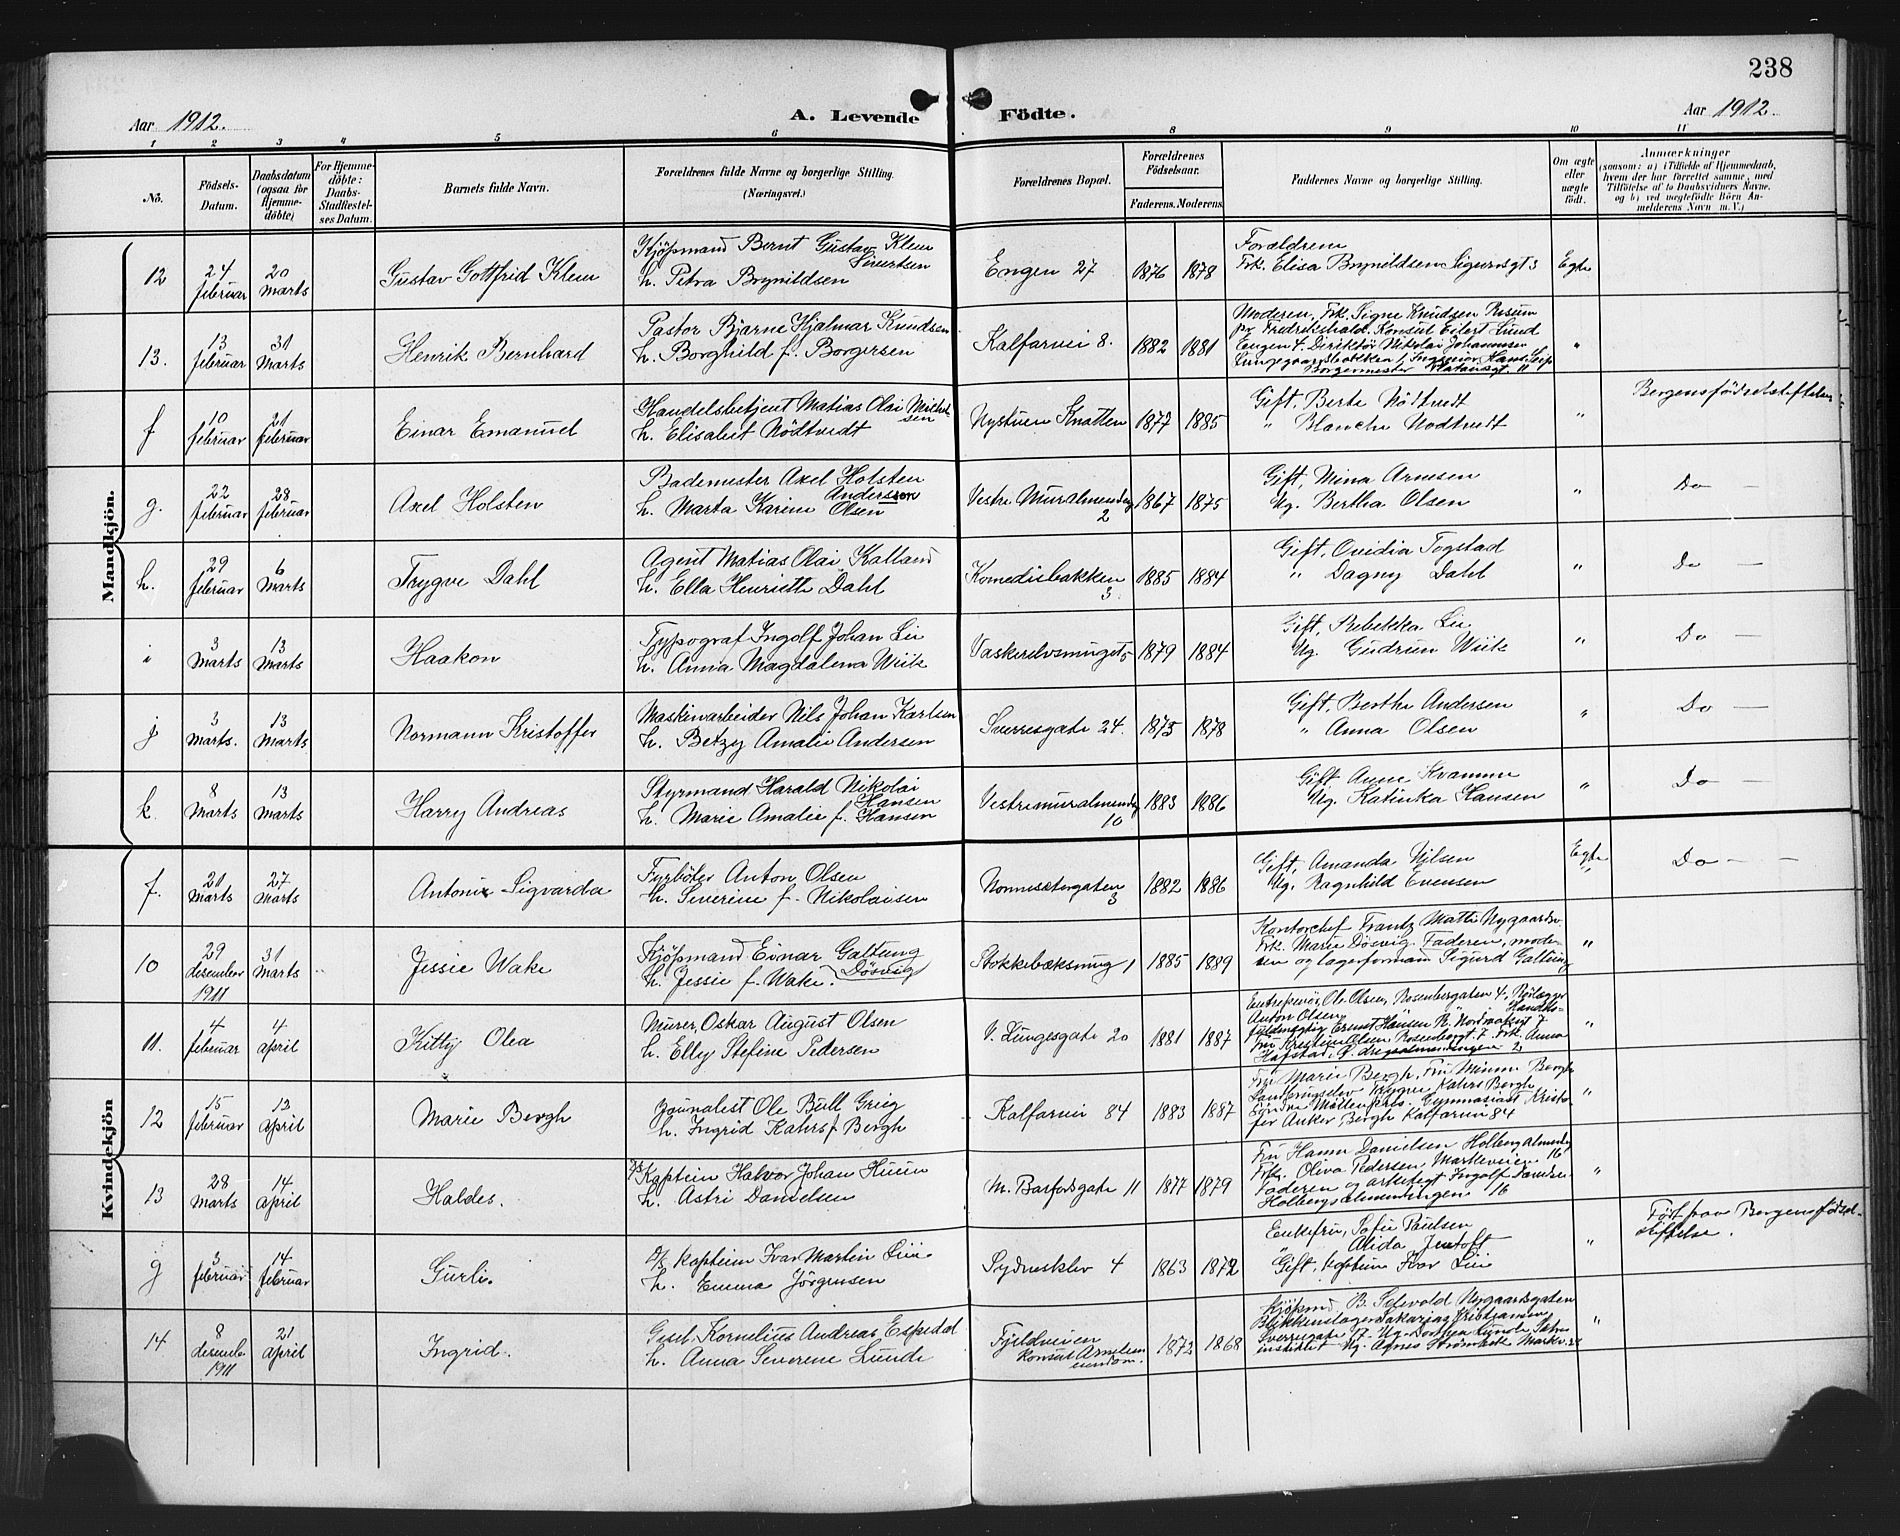 238
Aar 1912.
A. Levende Födte.
Aar 1912.
1 2 3 4 5 6 8 9 10 11
No.
Födsels-Datum.
Daabsdatum (ogsaa for Hjemme-döbte)
For Hjemme-döbte: Daabs-Stadfæstel-ses Datum.
Barnets fulde Navn.
Forældrenes fulde Navne og borgerlige Stilling. (Næringsvei.)
Forældrenes Bopæl.
Forældrenes Födselsaar.
Faderens. Moderens.
Faddernes Navne og borgerlige Stilling.
Om ægte eller uægte födt.
Anmærkninger
(saasom: a) i Tilfælde af Hjemmedaab,
hvem der har forrettet samme, med
Tilföielse af to Daabsvidners Navne,
og b) ved uægtefödte Börn An-
melderens Navn m. V.)
Mandkjön.
12 24 februar 20 Marts Gustav Gottfrid Klem Kjöpmand Bernt Gustav Klem Sivertsen
h. Petra Brynildsen Engen 27 1876 1878 Forældrene
Frk. Elisa Brynildsen Sigurdsgt 3 Egte
13. 13 februar 31 Marts Henrik Bernhard Pastor Bjarne Hjalmar Knudsen
h. Borghild f. Borgersen Kalfarvei 8. 1882 1881 Moderen, Frk. Signe Knudsen Risum
pr. Fredrikshald. Konsul Eilert Lund
Engen 4. Direktör Nikolai Johannsen
Lungegaardsbakken 1, Ingeniör Hans
Borgermester Platousgt. 11 "
f 10 februar 21 februar Einar Emanuel Handelsbetjent Matias Olai
h. Elisabet Nödtvedt Nystuen Knatten 1877 1885 Gift, Berte Nödtvedt
" Blanche Nödtvedt " Bergensfödselsstiftelse
g. 22 februar 28 februar Axel Holsten Bademester Axel Holsten Anderssen
h. Marta Karine Olsen Vestre Muralmending 2 1867 1875 Gift, Mina Arnesen
Ug. Bertha Olsen " Do —
h. 29 februar 6 Marts Trygve Dahl Agent Matias Olai Kalland
h. Ella Henriette Dahl Komediebakken 3 1885 1884 Gift, Ovidia Togstad
" Dagny Dahl " Do —
i 3 Marts 13 Marts Haakon Typograf Ingolf Johan Lie
h. Anna Magdalena Wiik Vaskerelvsmuget 5 1879 1884 Gift, Rebekka Lie
Ug. Gudrun Wiik " Do —
j 3 Marts. 13 Marts Normann Kristoffer Maskinarbeider Nils Johan Karlsen
h. Betzy Amalie Andersen Sverresgate 24. 1875 1878 Gift, Berthe Andersen
" Anna Olsen " Do —
k. 8 Marts 13 Marts Harry Andreas Styrmand Harald Nikolai Hansen
h. Marie Amalie f. Hansen Vestremuralmending 10 1883 1886 Gift Anne Kvamme
Ug. Katinka Hansen " Do —
Kvindekjön
f. 21 Marts 27 Marts Antonie Sigvarda Fyrböter Anton Olsen
h. Severine f. Nikolaisen Nonnesetergaten 3 1882 1886 Gift, Amanda Nilsen
Ug. Ragnhild Evensen Egte " Do — —
10 29 desember 1911 31 Marts Jessie Wake Kjöpmand Einar Galtung Dösvig
h. Jessie f. Wake. Stokkebæksmug 1 1885 1889 Kontorchef Frantz Matti Nygaardsv.
Frk. Marie Dösvig. Faderen, mode-
ren og lagerformann Sigurd Galtung "
11. 4 februar 4 april Kitty Olea Murer, Oskar August Olsen
h. Elly Stefine Pedersen V. Lungesgate 20 1881 1887 Entreprenör, Ole Olsen, Rosenbergaten 4, Rörlægger
Anton Olsen, Handels-
fuldmægtig Ernst Hansen N. Nordmakrst 7
Fru Kristine Olsen Rosenbergt. 7 Frk. Anna
Hafstad, 2 "
12 15 februar 12 april Marie Bergh Journalist Ole Bull Grieg
h. Ingrid Kahrs f. Bergh Kalfarvei 84 1883 1887 Fru Marie Bergh, Fru Minna Bergh
Landbrugselev Trygve Kahrs Bergh
Söndre Möllenpris. Gymnasiast Kristo-
fer Anker Bergh Kalfarvei 84 "
13 28 Marts 14 april Haldes. Kaptein Halvor Johan Huun
h. Astri Danielsen M. Barfodsgate 11 1877 1879 Fru Hanna Danielsen Holbergalmendg
Frk. Oliva Pedersen, Markeveien 16
Faderen og arkitegt Ingolf Danielsen
Holbergsalmendingen 16 "
g 3 februar 14 februar Gurli. D/S Kaptein Ivar Martin Lie
h. Emma Jörgensen Sydnesklev 4 1863 1872 Enkefru, Sofie Paulsen
" Alida Jentoft
Gift, Kaptein Ivar Lie " Födt paa Bergensfödsel-
stiftelse.
14 8 desembr 1911 21 april Ingrid. Gesel. Kornelius Andreas Espedal
h. Anna Severene Lunde Fjeldveien
konsul Arnesens
eiendom. 1872 1868 Kjöpmd B. Selvold Nygaardsgaten
Blikkenslager Sakarias Kristiansen
Sverresgate 7. Ug. Dorthea Lunde
institut Ug. Agnes Strömbak Markv. 24 "